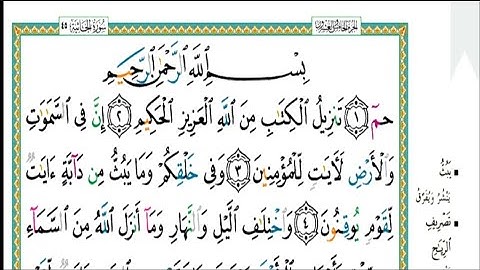 سورة الجاثية ٤٥
بِسْمِ ٱللَّهِ ٱلرَّحْمَٰنِ ٱلرَّحِيمِ
حمٓ ١ تَنزِيلُ ٱلْكِتَٰبِ مِنَ ٱللَّهِ ٱلْعَزِيزِ ٱلْحَكِيمِ ٢ إِنَّ فِى ٱلسَّمَٰوَٰتِ
وَٱلْأَرْضِ لَأٓيَٰتٍ لِّلْمُؤْمِنِينَ ٣ وَفِى خَلْقِكُمْ وَمَا يَبُثُّ مِن دَآبَّةٍ ءَايَٰتٌ
لِّقَوْمٍ يُوقِنُونَ ٤ وَٱخْتِلَٰفِ ٱلَّيْلِ وَٱلنَّهَارِ وَمَآ أَنزَلَ ٱللَّهُ مِنَ ٱلسَّمَآءِ
يَبُثُّ
يَنْشُرُ وَيُفَرِّقُ
تَصْرِيفِ
الرِّيَاحِ